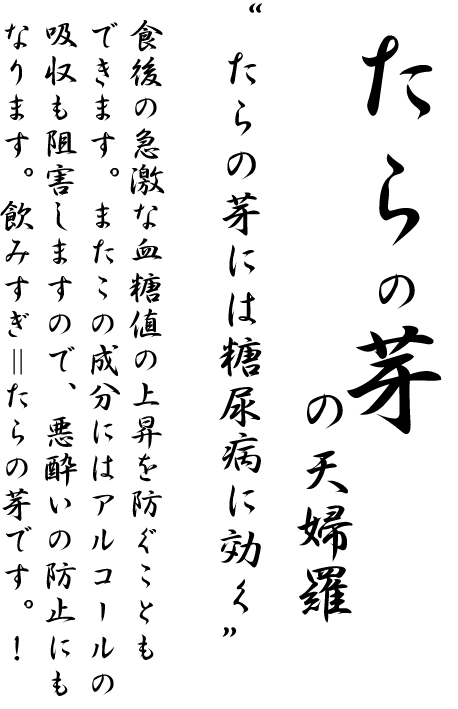 たらの芽
の天婦羅
“たらの芽には糖尿病に効く”
食後の急激な血糖値の上昇を防ぐことも
できます。またこの成分にはアルコールの
吸収も阻害しますので、悪酔いの防止にも
なります。飲みすぎ＝たらの芽です。！